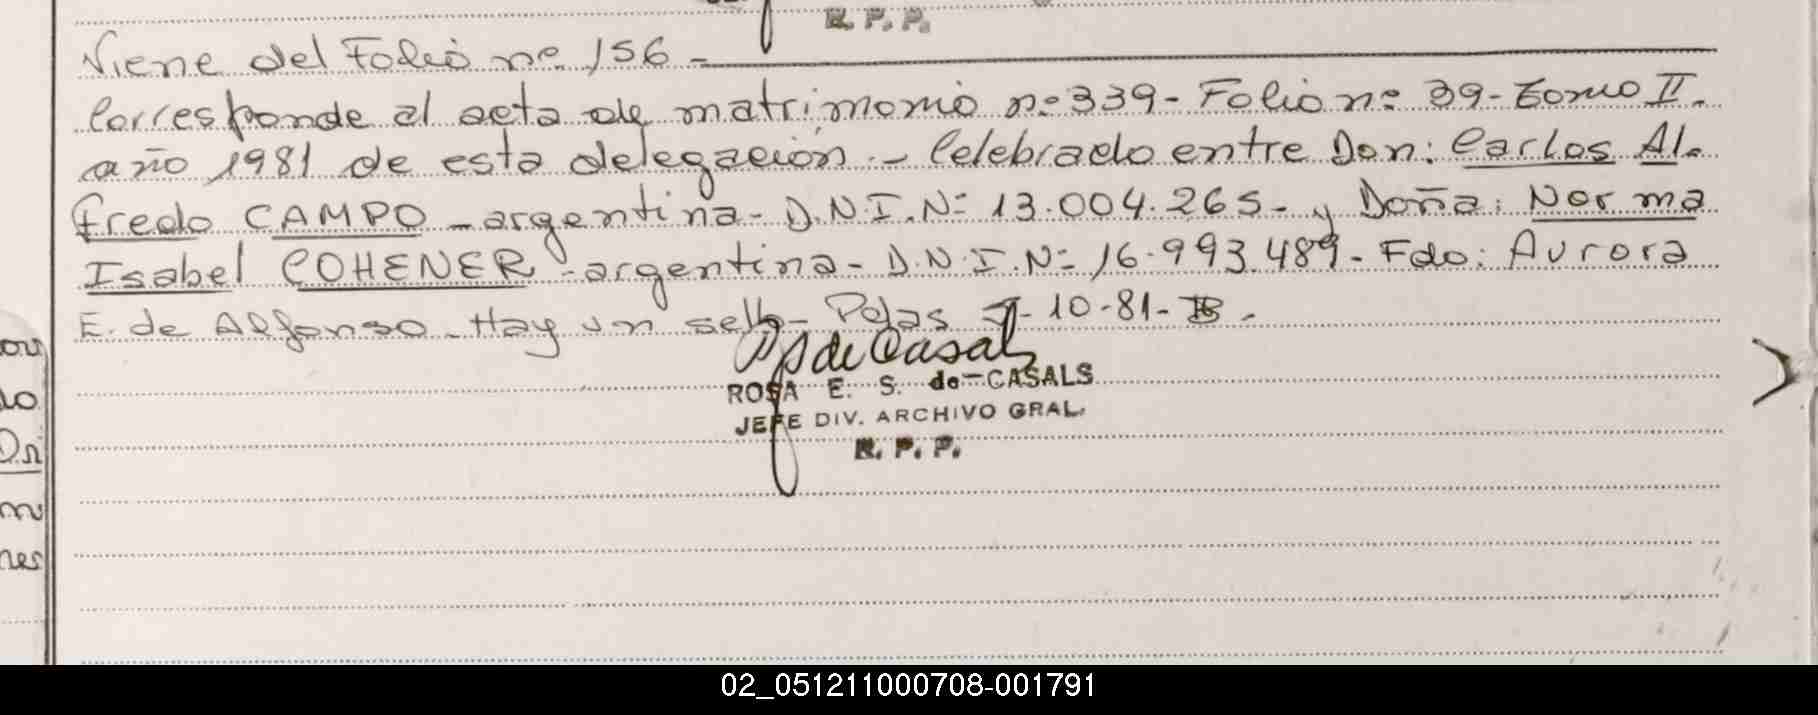 R. P. P.
Viene del Folio nº 156 -
Corresponde al acta de matrimonio nº 339- Folio nº 39- tomo II.
año 1981 de esta delegación.- Celebrado entre Don: Carlos Al-
fredo CAMPO - argentina- D.N.I. Nº 13.004.265- y Doña: Norma
Isabel COHENER - argentina - D.N.I. Nº 16.993.489- Fdo: Aurora
E. de Alfonso. Hay un sello- Pdas 7-10-81-
de Casals
ROSA E. S. de CASALS
JEFE DIV. ARCHIVO GRAL.
R. P. P.
02_051211000708-001791